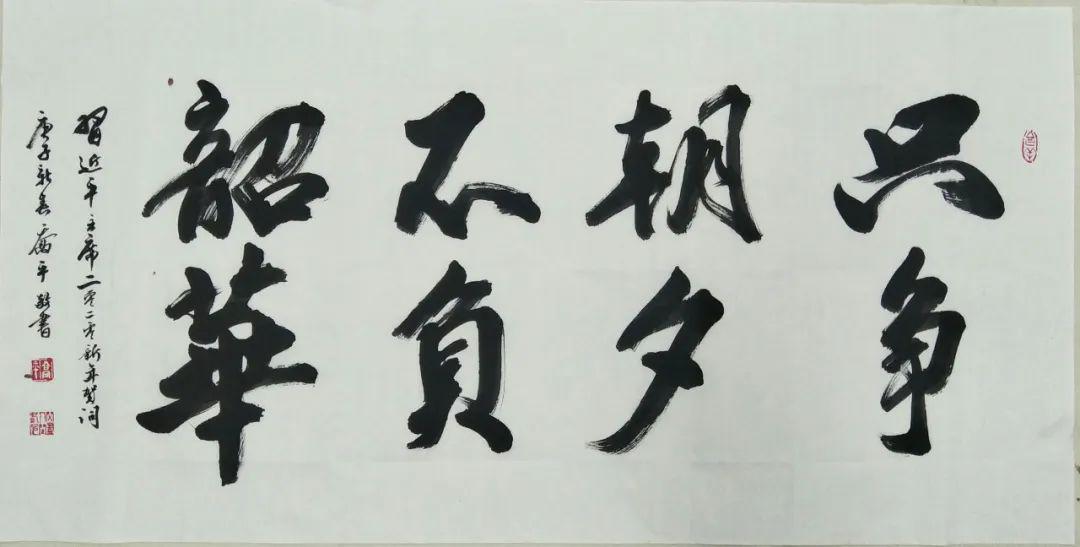 只争
朝夕
不负
韶華
習近平主席二零二零新年賀词
庚子新春高平敬書